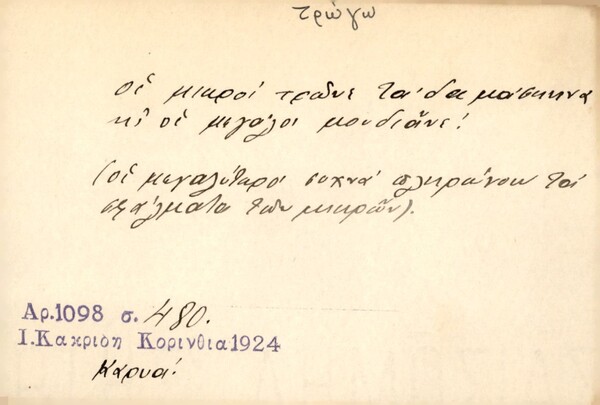 τρώγω
οἱ μικροί τρῶνε τά δαμάσκηνα
κι̉ οἱ μεγάλοι μουδιᾶνε!
(οἱ μεγαλύτεροι συχνά πληρώνουν τά
σφάλματα τῶν μικρῶν).
Αρ.1098 σ. 480.
Ι.Κακριδη Κορινθια 1924
Καρυά!